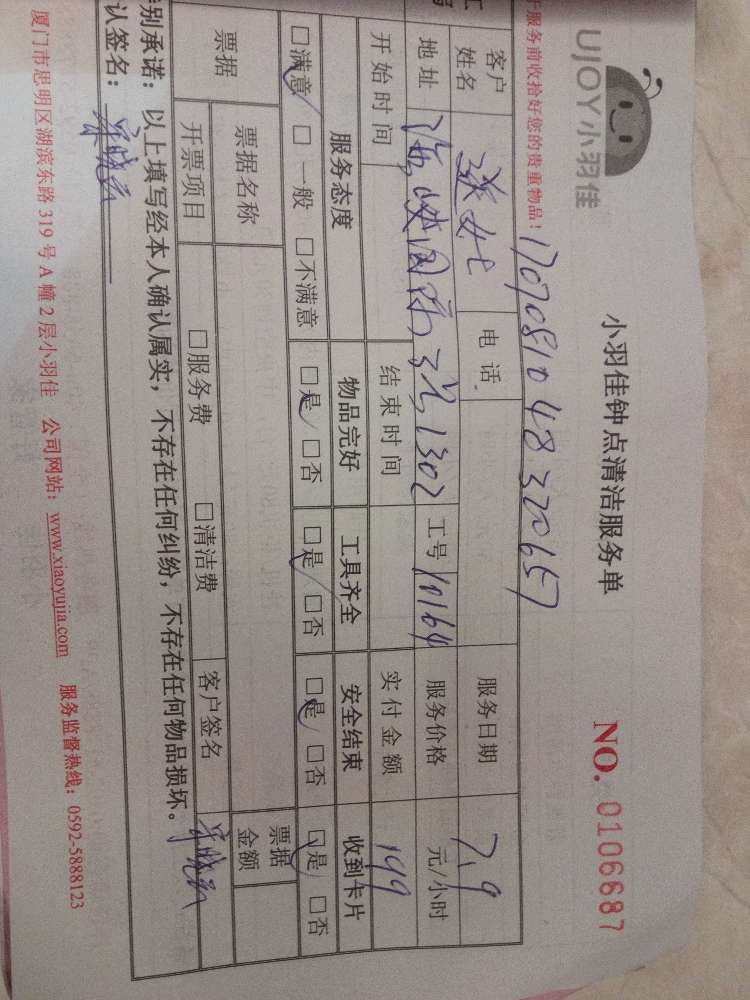 小羽佳钟点清洁服务单
NO. 0106687
UJOY小羽佳
服务前收拾好您的贵重物品！
客户姓名 电话 服务日期 7.9
地址 1302 工号 11164 服务价格 元/小时
开始时间 结束时间 实付金额 199
服务态度 物品完好 工具齐全 安全结束 收到卡片
□满意 □一般 □不满意 □是 □否 □是 □否 □是 □否 □是 □否
票据 票据名称 票据金额
开票项目 □服务费 □清洁费 客户签名
别承诺：以上填写经本人确认属实，不存在任何纠纷，不存在任何物品损坏。
认签名：
厦门市思明区湖滨东路 319 号 A 幢 2 层小羽佳 公司网站：www.xiaoyujia.com 服务监督热线：0592-5888123